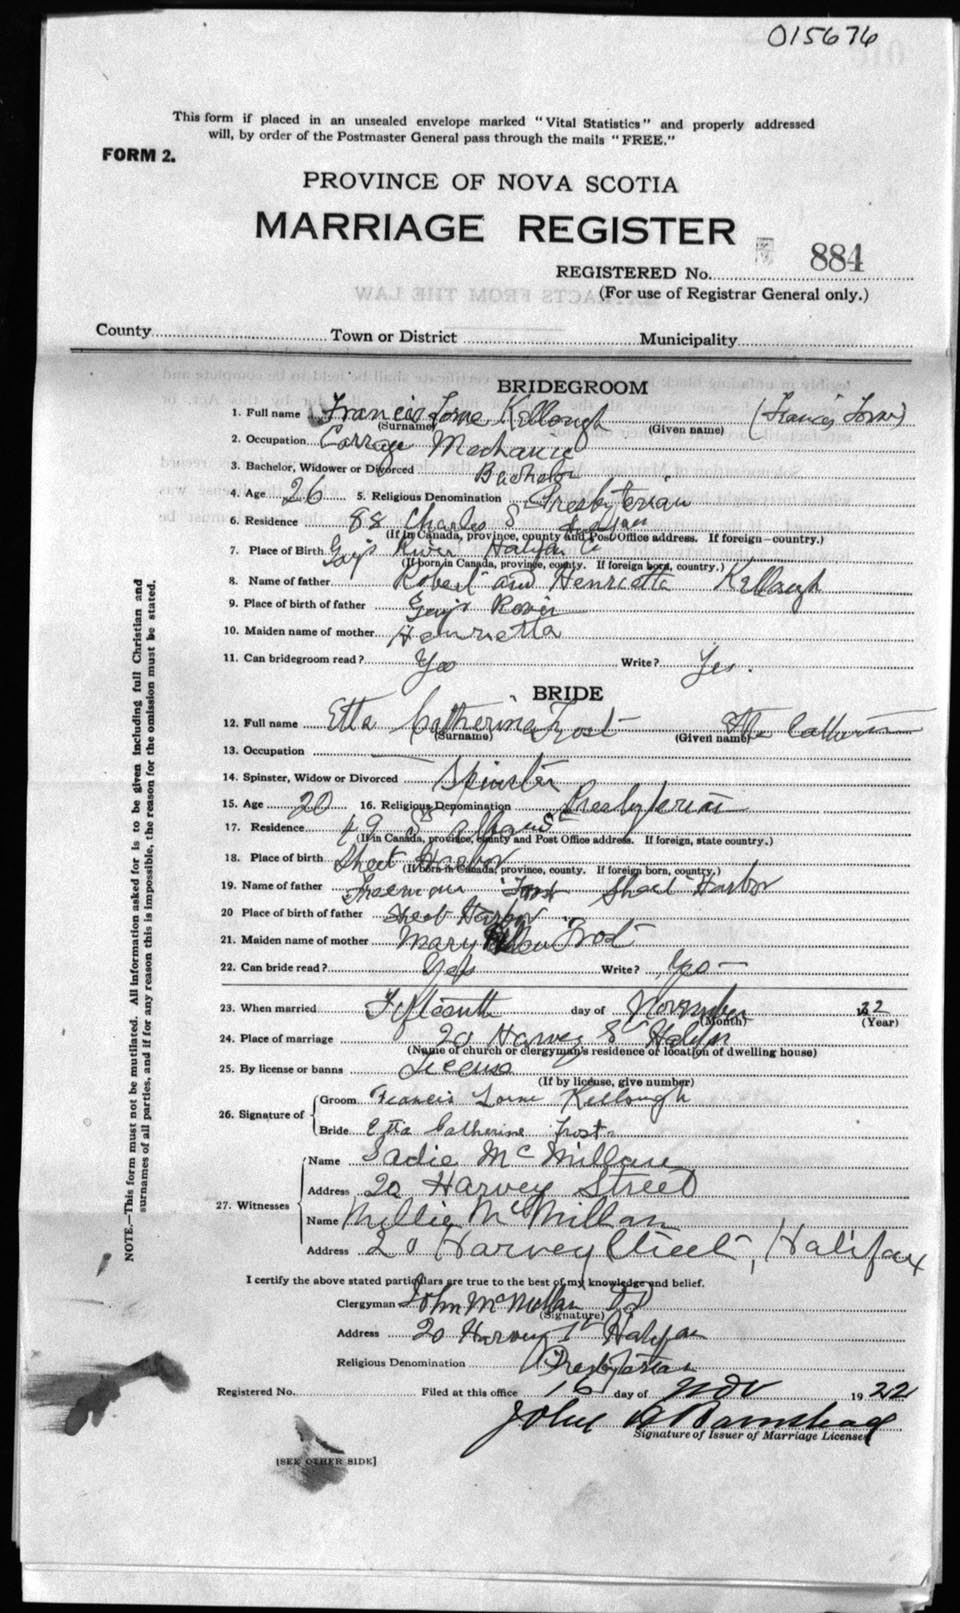 015676
This form if placed in an unsealed envelope marked "Vital Statistics" and properly addressed
will, by order of the Postmaster General pass through the mails "FREE."
FORM 2.
PROVINCE OF NOVA SCOTIA
MARRIAGE REGISTER
REGISTERED No. 884
(For use of Registrar General only.)
County Town or District Municipality
BRIDEGROOM
1. Full name Francis Lorne Kellough (Francis Lorne)
(Surname) (Given name)
2. Occupation Carriage Mechanic
3. Bachelor, Widower or Divorced Bachelor
4. Age 26 5. Religious Denomination Presbyterian
6. Residence 88 Charles St Halifax
(If in Canada, province, county and Post Office address. If foreign—country.)
7. Place of Birth Gay's River Halifax Co
(If born in Canada, province, county. If foreign born, country.)
8. Name of father Robert and Henrietta Kellough
9. Place of birth of father Gay's River
10. Maiden name of mother Henrietta
11. Can bridegroom read? Yes Write? Yes.
BRIDE
12. Full name Etta Catherine Frost Etta Catherine
(Surname) (Given name)
13. Occupation
14. Spinster, Widow or Divorced Spinster
15. Age 20 16. Religious Denomination Presbyterian
17. Residence 49 St Albans St
(If in Canada, province, county and Post Office address. If foreign, state country.)
18. Place of birth Sheet Harbor
(If born in Canada, province, county. If foreign born, country.)
19. Name of father Freeman Frost Sheet Harbor
20 Place of birth of father Sheet Harbor
21. Maiden name of mother Mary Frost
22. Can bride read? Yes Write? Yes—
23. When married Fifteenth day of November 22
(Month) (Year)
24. Place of marriage 20 Harvey St Halifax
(Name of church or clergyman's residence or location of dwelling house)
25. By license or banns License
(If by license, give number)
26. Signature of
Groom Francis Lorne Kellough
Bride Etta Catherine Frost
27. Witnesses
Name Sadie McMillan
Address 20 Harvey Street
Name Millie McMillan
Address 20 Harvey Street, Halifax
I certify the above stated particulars are true to the best of my knowledge and belief.
Clergyman John McMillan DD
(Signature)
Address 20 Harvey St Halifax
Religious Denomination Presbyterian
Registered No. Filed at this office 16 day of Nov 1922
John A Barnstead
Signature of Issuer of Marriage Licenses
[SEE OTHER SIDE]
NOTE.—This form must not be mutilated. All information asked for is to be given including full Christian and
surnames of all parties, and if for any reason this is impossible, the reason for the omission must be stated.